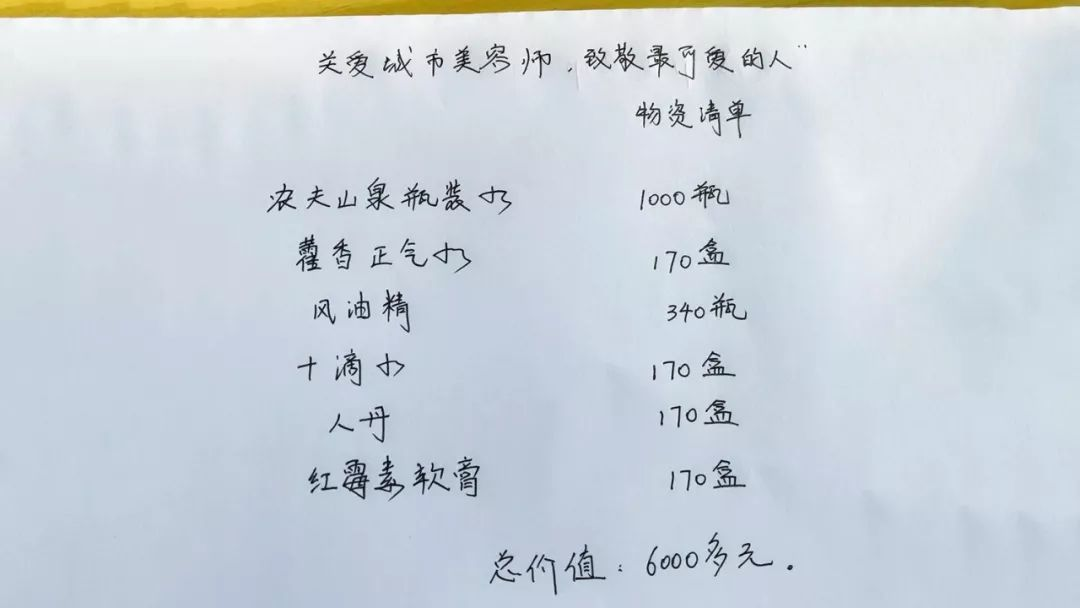 关爱城市美容师，致敬最可爱的人"
物资清单
农夫山泉瓶装水 1000瓶
藿香正气水 170盒
风油精 340瓶
十滴水 170盒
人丹 170盒
红霉素软膏 170盒
总价值：6000多元.